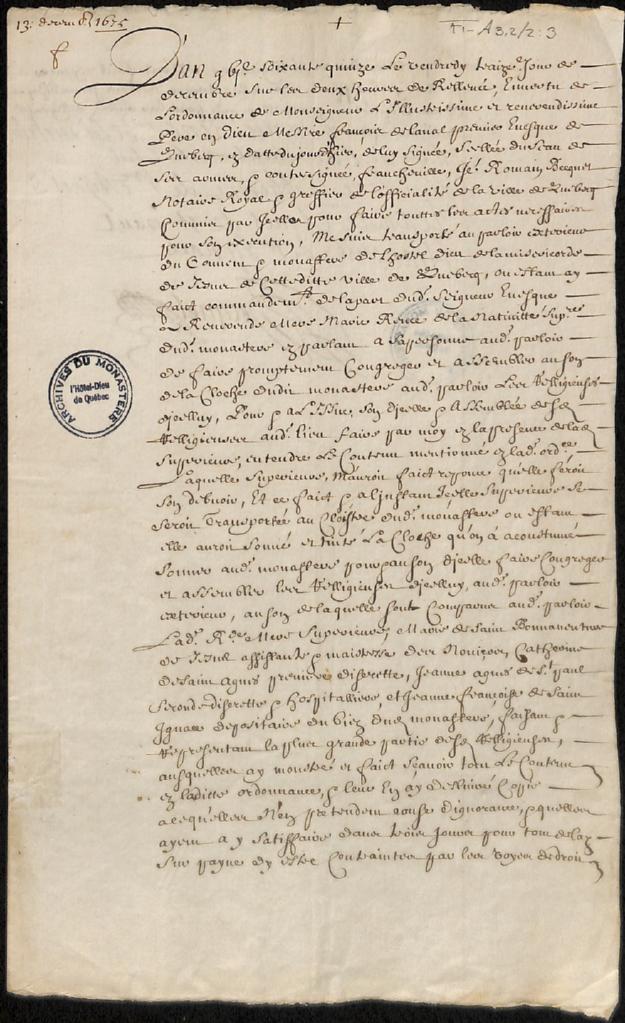 13: decemb 1675
+
T1-A3,2/2:3
L'an g bjc soixante quinze Le vendredy traize Jour de
decembre sur les deux heures de Rellevée, En vertu de
L'ordonnance de Monseigneur L'Illustrissime et reverendissime
Pere en dieu Messire françois de laval premier Evesque de
Quebecq, de luy signée, scellée du sceau de
ses armes, & contresignée, francheville, Je Romain Becquet
Notaire Royal & greffier de l'officialité de la ville de Quebecq
Commis par Icelles pour faire touttes les actes necessaires
pour son execution, Me suis transporté au parloir exterieur
du Convent & monastere de l'hostel dieu de la misericorde
de Jesus de Cette ditte ville de Quebecq, ou estant ay
faict commandemt de la part dud. Seigneur Evesque
a Reverende Mere Marie Renee de la Nativitte Supre
dud. monastere parlant a sa personne aud. parloir
de faire promptement Congreger et assembler au son
de la Cloche dudit monastere aud. parloir Les Relligieuses
d'jcelluy, Pour
Relligieuses aud. lieu faire par moy en la presence de lad
Superieure, entendre Le Contenu mentionné en lad. ordce
Laquelle Superieure, M'auroit faict reponce qu'elle feroit
son debvoir, Et ce faict & a l'instant Icelle Superieure se
seroit Transportée au Cloistre dud. monastere ou estant
elle auroit sonné et tinté La Cloche qu'on a acoustumé
sonner aud. monastere pour au son d'jcelle faire Congreger
et assembler les Relligieuses d'jcelluy, aud. parloir
exterieur, au son de laquelle sont Comparues aud. parloir
Lad. Rde Mere Superieure, Marie de Saint Bonnaventure
de Jesus assistante & maistresse des Novices, Catherine
de saint agnes premiere discrette, Jeanne agnes de St paul
seconde discrette & hospitalliere, et Jeanne françoise de saint
Ignace depositaire du bien dud. monastere, faisant &
Representant la plus grande partie desd. Relligieuses,
ausquelles ay monstré et faict sçavoir tout Le Contenu
en laditte ordonnance, & leur En ay dellivré Copie
a ce qu'elles N'en pretendent cause d'ignorance, & qu'elles
ayent a y satisfaire dans trois jours pour tout delay
sur payne d'y estre Contraintes par les voyes de droit
ARCHIVES DU MONASTÈRE
l'Hôtel-Dieu
de Québec